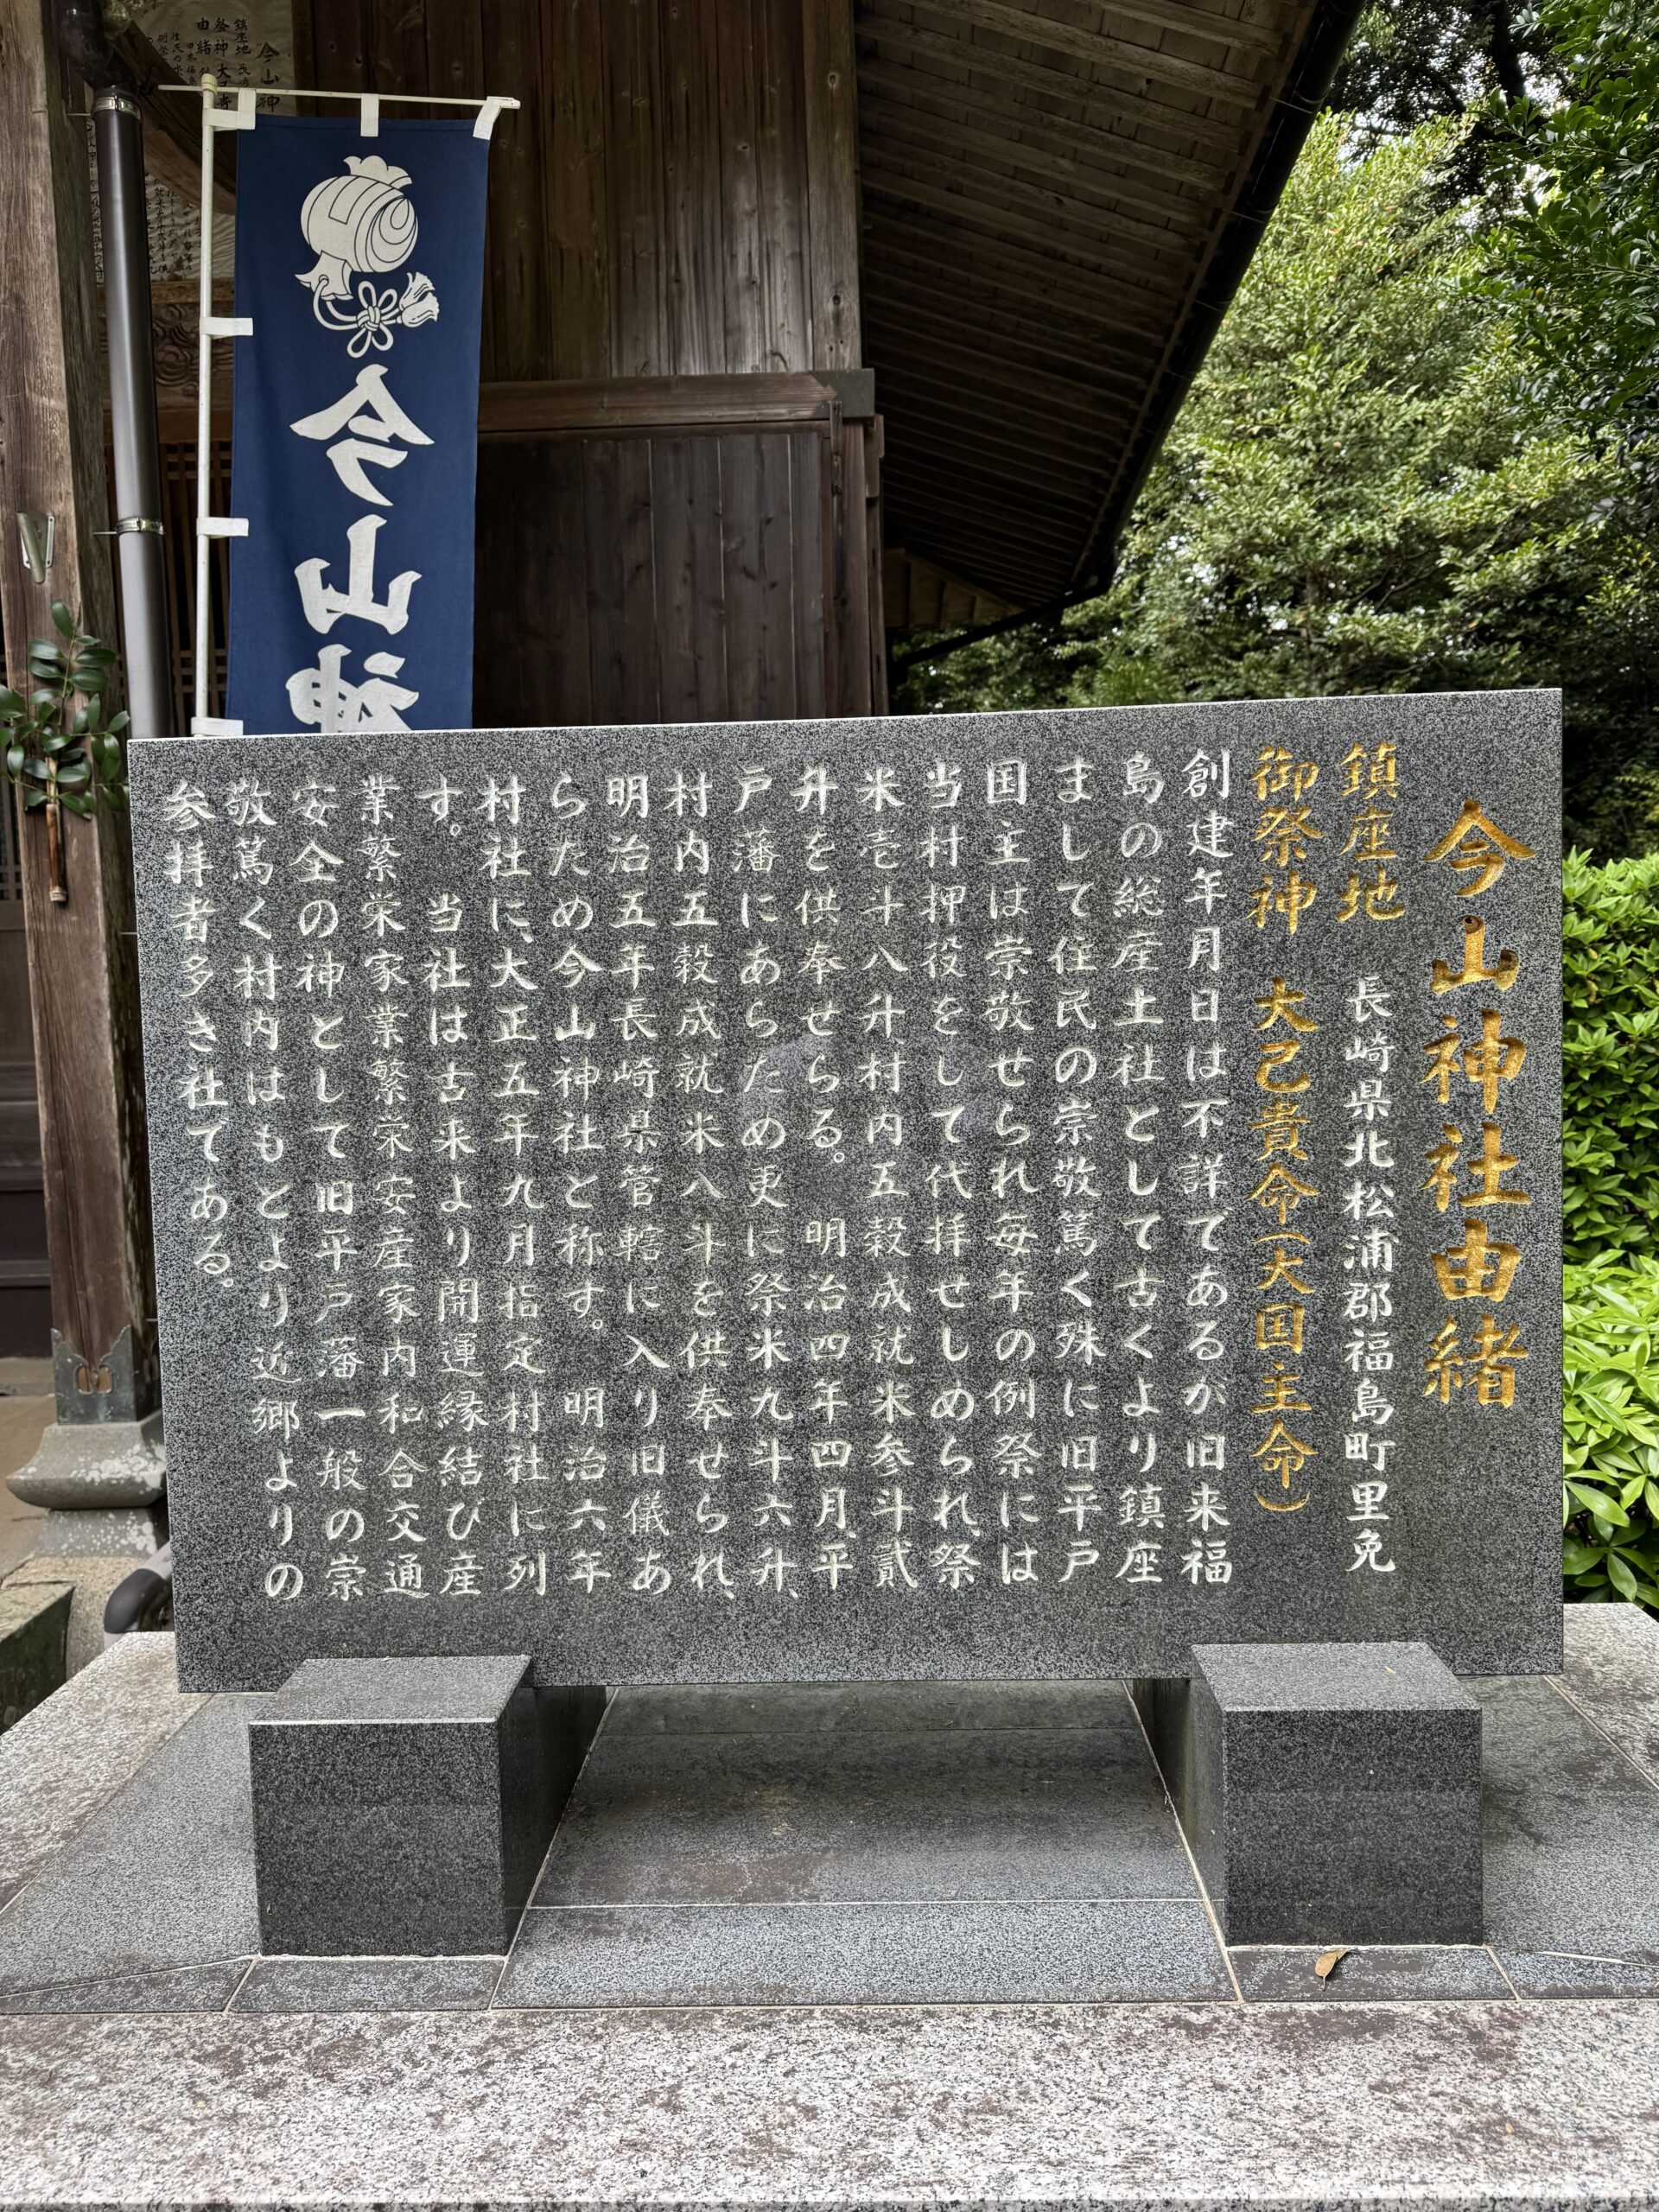 今山神社由緒
鎮座地 長崎県北松浦郡福島町里免
御祭神 大己貴命(大国主命)
創建年月日は不詳であるが旧来福
島の総産土社として古くより鎮座
まして住民の崇敬篤く殊に旧平戸
国主は崇敬せられ毎年の例祭には
当村押役をして代拝せしめられ、祭
米壱斗八升、村内五穀成就米参斗貳
升を供奉せらる。 明治四年四月、平
戸藩にあらため更に祭米九斗六升、
村内五穀成就米八斗を供奉せられ、
明治五年長崎県管轄に入り旧儀あ
らため今山神社と称す。 明治六年
村社に、大正五年九月指定村社に列
す。 当社は古来より開運縁結び産
業繁栄家業繁栄安産家内和合交通
安全の神として旧平戸藩一般の崇
敬篤く村内はもとより近郷よりの
参拝者多き社てある。
今山神
今山神
鎮座地 長崎
祭神 大己貴
由緒